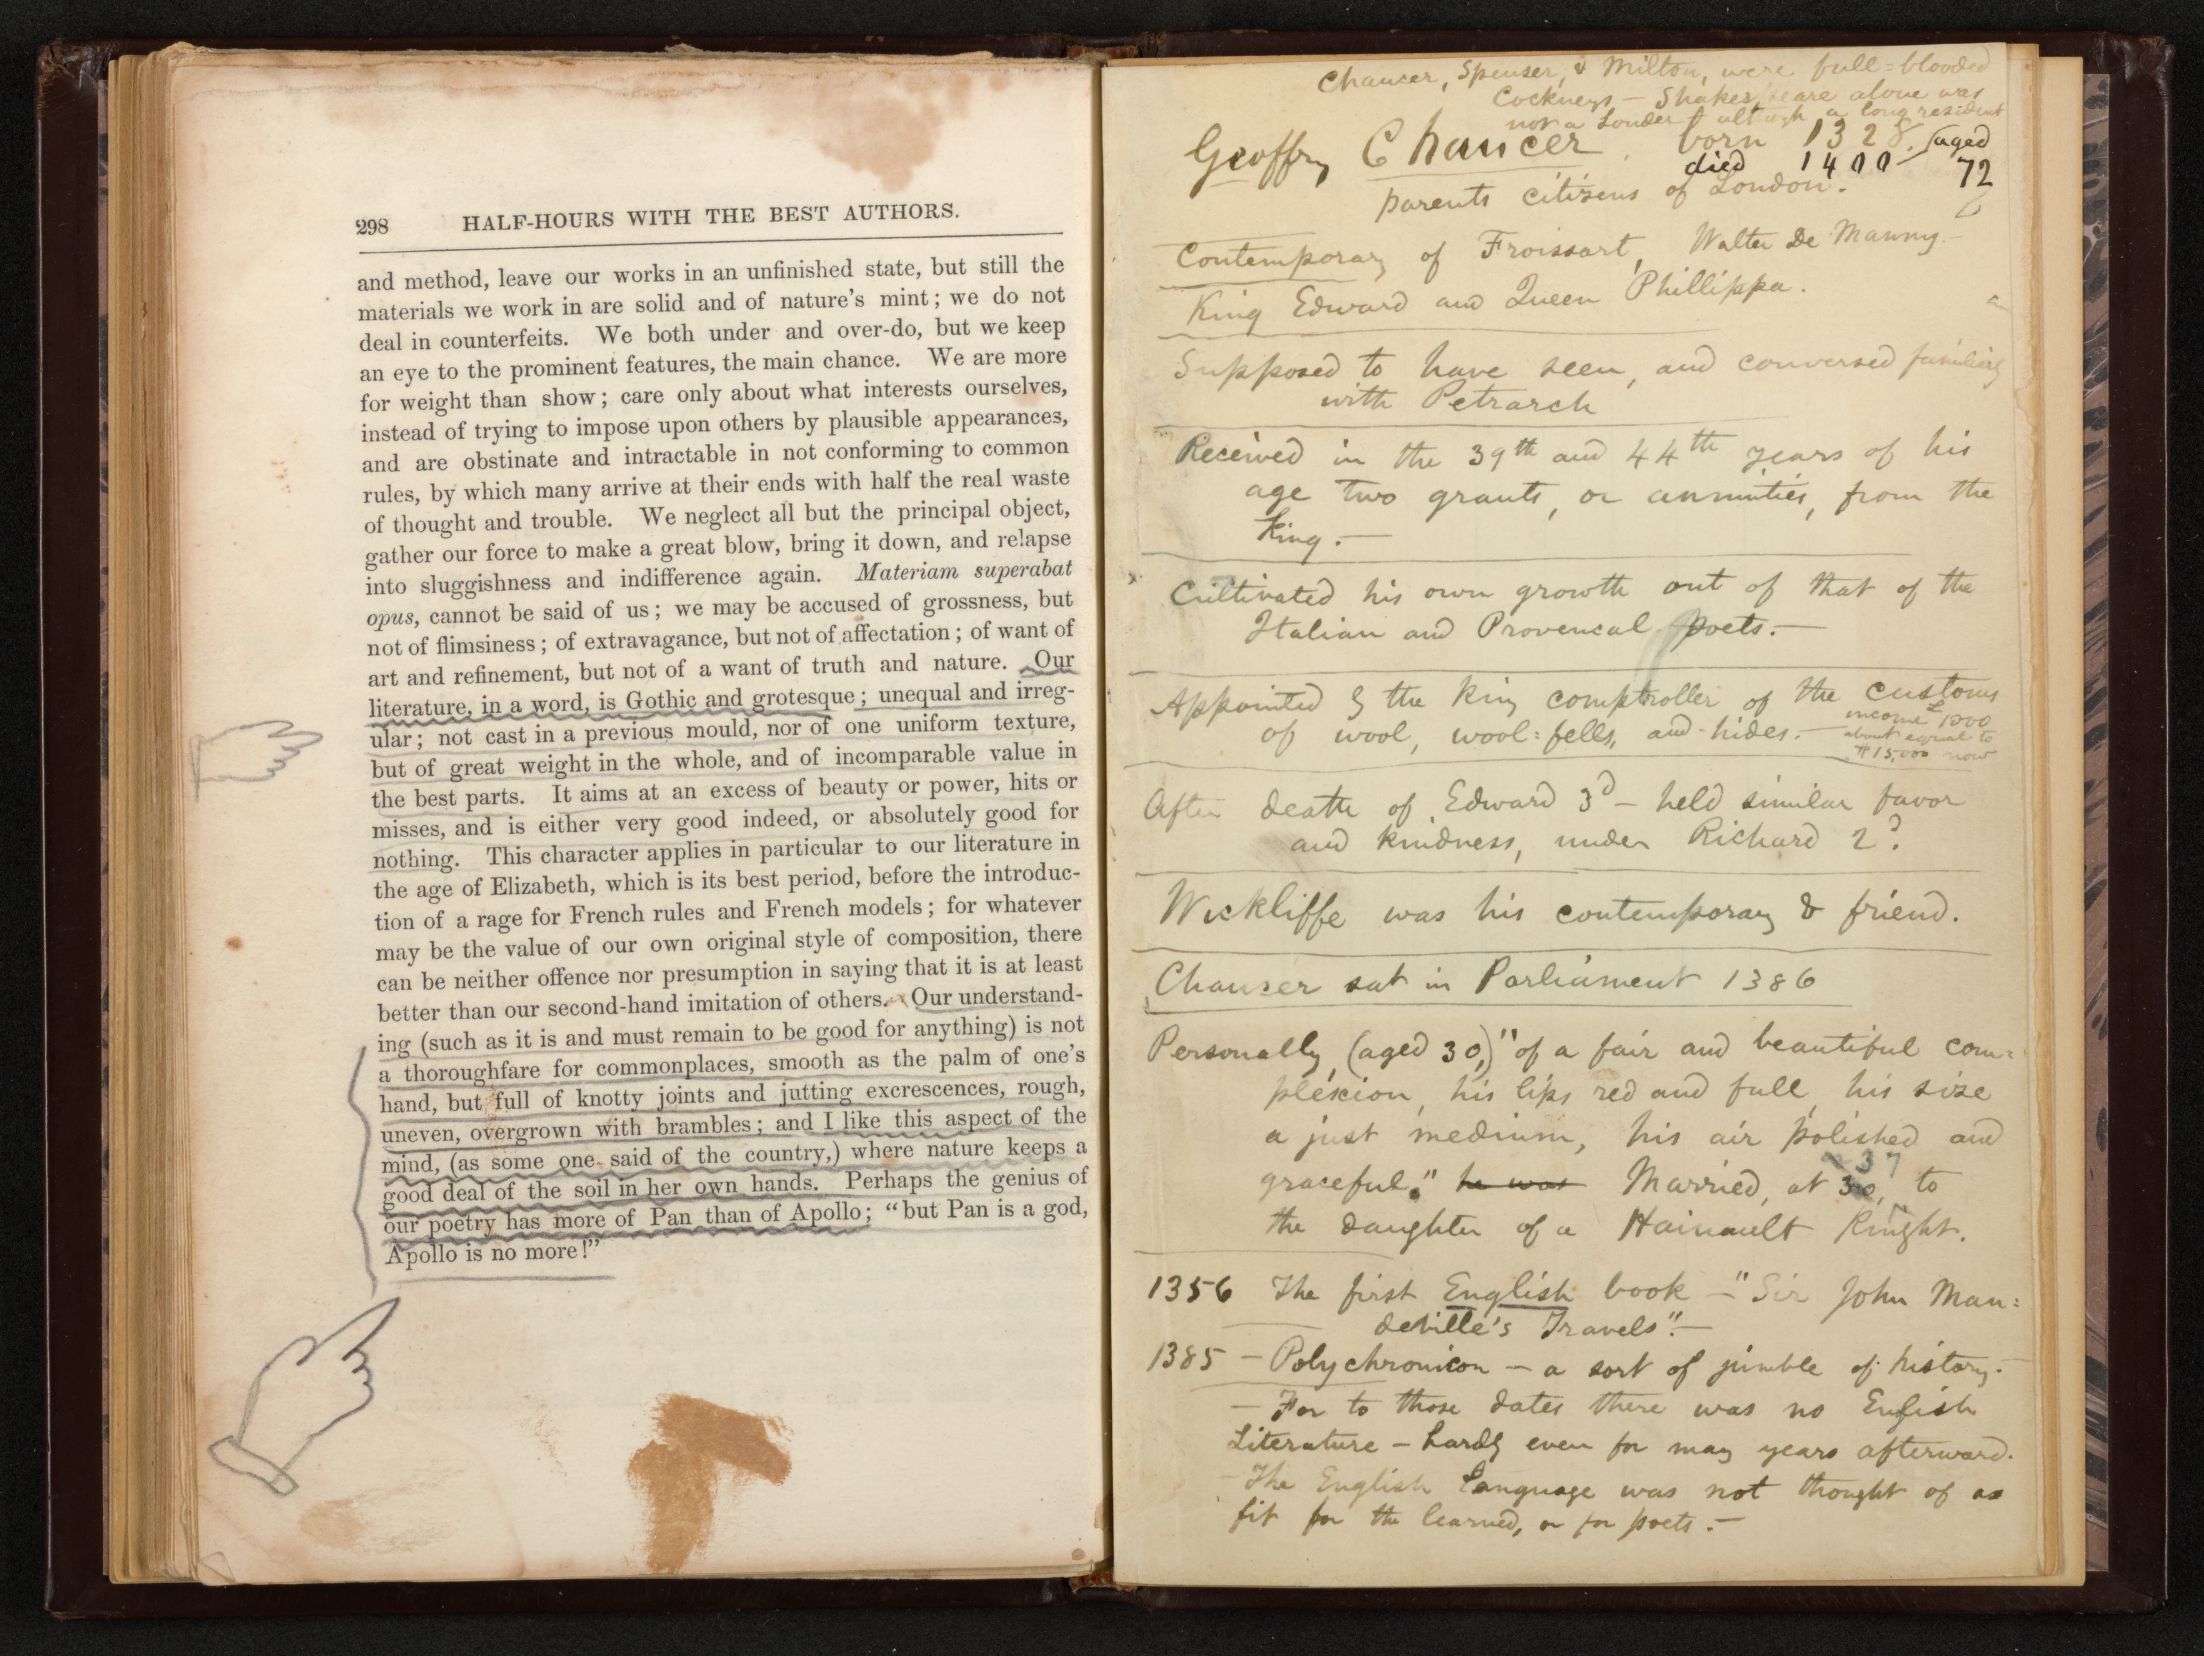 298 HALF-HOURS WITH THE BEST AUTHORS.
and method, leave our works in an unfinished state, but still the
materials we work in are solid and of nature's mint; we do not
deal in counterfeits. We both under and over-do, but we keep
an eye to the prominent features, the main chance. We are more
for weight than show; care only about what interests ourselves,
instead of trying to impose upon others by plausible appearances,
and are obstinate and intractable in not conforming to common
rules, by which many arrive at their ends with half the real waste
of thought and trouble. We neglect all but the principal object,
gather our force to make a great blow, bring it down, and relapse
into sluggishness and indifference again. Materiam superabat
opus, cannot be said of us; we may be accused of grossness, but
not of flimsiness; of extravagance, but not of affectation; of want of
art and refinement, but not of a want of truth and nature. Our
literature, in a word, is Gothic and grotesque; unequal and irreg-
ular; not cast in a previous mould, nor of one uniform texture,
but of great weight in the whole, and of incomparable value in
the best parts. It aims at an excess of beauty or power, hits or
misses, and is either very good indeed, or absolutely good for
nothing. This character applies in particular to our literature in
the age of Elizabeth, which is its best period, before the introduc-
tion of a rage for French rules and French models; for whatever
may be the value of our own original style of composition, there
can be neither offence nor presumption in saying that it is at least
better than our second-hand imitation of others. Our understand-
ing (such as it is and must remain to be good for anything) is not
a thoroughfare for commonplaces, smooth as the palm of one's
hand, but full of knotty joints and jutting excrescences, rough,
uneven, overgrown with brambles; and I like this aspect of the
mind, (as some one said of the country,) where nature keeps a
good deal of the soil in her own hands. Perhaps the genius of
our poetry has more of Pan than of Apollo; "but Pan is a god,
Apollo is no more!"
Chaucer, Spenser, & Milton, were full=blooded
Cockneys – Shakespeare alone was
not a Londer altough a long resident
Geoffry Chaucer born 1328. (aged
died 1400 – 72
parents citizens of London.
Contemporary of Froissart, Walter De Manny –
King Edward and Queen Phillippa.
Supposed to have seen, and conversed familiarly
with Petrarch
Received in the 39th and 44th years of his
age two grants, or annuities, from the
King. –
Cultivated his own growth out of that of the
Italian and Provencal poets. –
Appointed by the King comptroller of the customs
of wool, wool=fells, and hides. –
income £1000
about equal to
$15,000 now
After death of Edward 3d – held similar favor
and kindness, under Richard 2d
Wickliffe was his contemporary & friend.
Chaucer sat in Parliament 1386
Personally, (aged 30,) "of a fair and beautiful com=
plexion, his lips red and full, his size
a just medium, his air polished and
graceful." he was Married, at 30, 37 to
the daughter of a Hainault Knight.
1356 The first English book – "Sir John Man=
deville's Travels". –
1385 – Polychronicon – a sort of jumble of history. –
– For to those dates there was no English
Literature – hardly even for many years afterward.
– The English Language was not thought of as
fit for the learned, or for poets. –